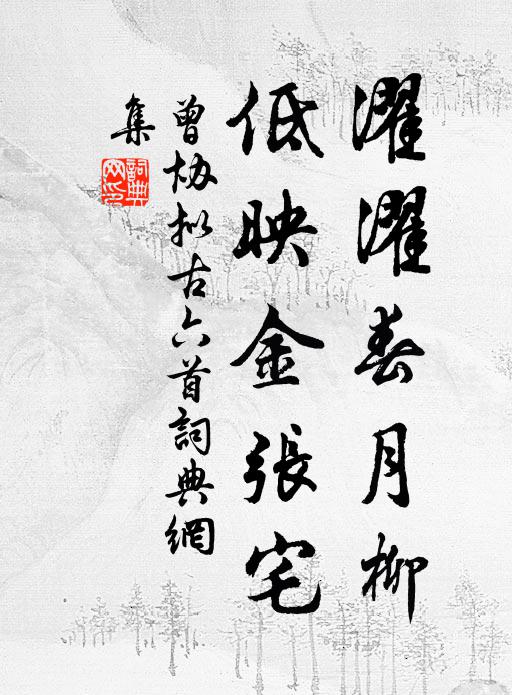 濯濯春月柳
低映金張宅
曾協拟古六首詞典網
集
詞典
网